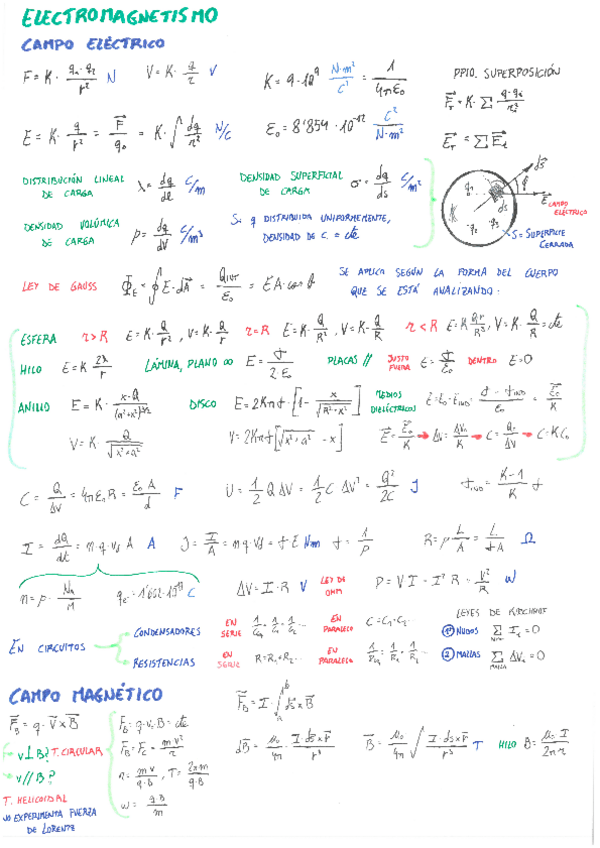 ELECTROMAGNETISMO
CAMPO ELÉCTRICO
F = K · q₁·q₂/r² N V = K · q/r V K = 9·10⁹ N·m²/C² = 1/4πε₀ PPIO. SUPERPOSICIÓN
E = K · q/r² = F/q₀ = K · ∫ dq/r² N/C ε₀ = 8'854 · 10⁻¹² C²/N·m²
DISTRIBUCIÓN LINEAL DE CARGA λ = dq/dl C/m DENSIDAD SUPERFICIAL DE CARGA σ = dq/ds C/m²
DENSIDAD VOLÚMICA DE CARGA ρ = dq/dV C/m³ Si q DISTRIBUIDA UNIFORMEMENTE, DENSIDAD DE C. = cte
E CAMPO ELÉCTRICO
S = SUPERFICIE CERRADA
LEY DE GAUSS Φ_E = ∮ E·dA = Q_INT/ε₀ = E A cos θ SE APLICA SEGÚN LA FORMA DEL CUERPO
QUE SE ESTÁ ANALIZANDO:
ESFERA r > R E = K · Q/r², V = K · Q/r r = R E = K · Q/R², V = K · Q/R r < R E = K Qr/R³, V = K · Q/R = cte
HILO E = K 2λ/r LÁMINA, PLANO ∞ E = σ/2ε₀ PLACAS // JUSTO FUERA E = σ/ε₀ DENTRO E = 0
ANILLO E = K · x·Q/(a²+x²)^3/2 DISCO E = 2Kπσ · [1 - x/√(R²+x²)] MEDIOS DIELÉCTRICOS
V = K · Q/√(x²+a²) V = 2Kπσ [√(x²+a²) - x] E = E₀/K → ΔV = ΔV₀/K → C = Q/ΔV → C = K C₀
C = Q/ΔV = 4πε₀R = ε₀ A/d F U = 1/2 Q ΔV = 1/2 C ΔV² = Q²/2C J σ_IND = K-1/K σ
I = dQ/dt = n·q·v_d A A J = I/A = n q v_d = σ E σ = 1/ρ R = ρ L/A = L/σA Ω
n = ρ · N_A/M ΔV = I·R V LEY DE OHM P = V I = I² R = V²/R W
EN CIRCUITOS
CONDENSADORES EN SERIE EN PARALELO C = C₁ + C₂...
RESISTENCIAS EN SERIE R = R₁ + R₂... EN PARALELO
LEYES DE KIRCHHOFF
1º NUDOS Σ I_i = 0
2 MALLAS Σ ΔV_i = 0
CAMPO MAGNÉTICO
F_B = q · V x B F_B = q·v·B = cte F_B = I · ∫ ds x B
v ⊥ B? T. CIRCULAR F_B = F_c = m v²/r dB = μ₀/4π · I ds x r/r³ B = μ₀/4π ∫ I·ds x r/r³ T HILO B = μ₀ I/2π r
v // B? r = m v/q·B, T = 2π m/q·B
T. HELICOIDAL ω = q·B/m
NO EXPERIMENTA FUERZA
DE LORENTZ